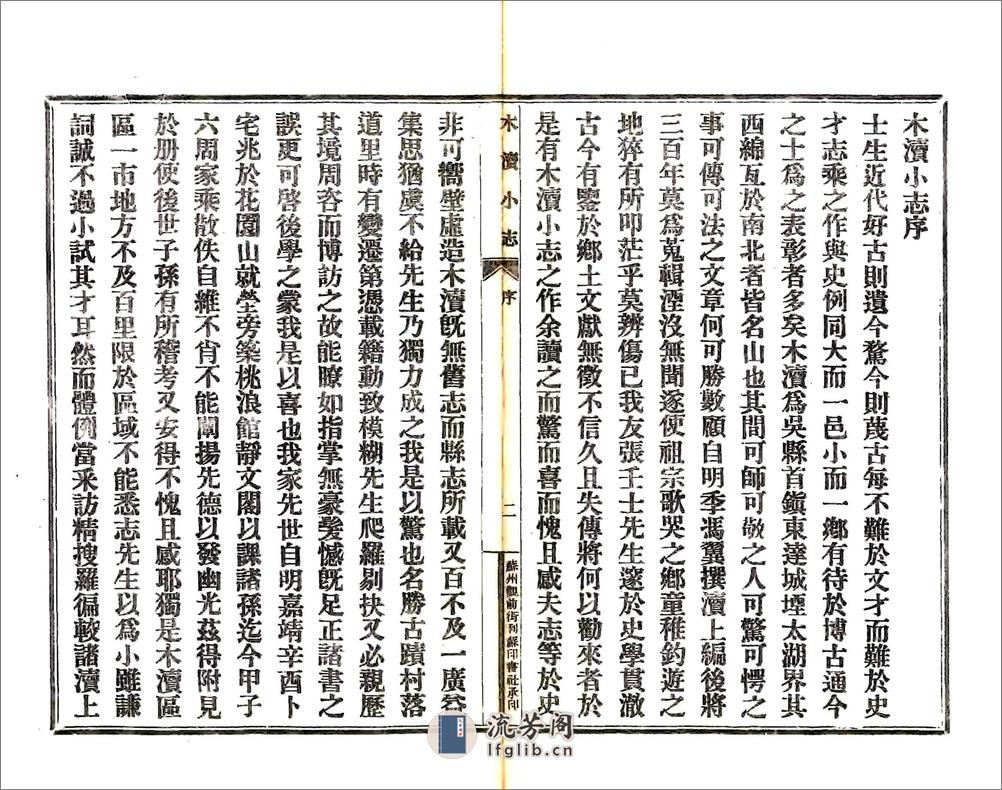 木瀆小志序
士生近代好古則遺今騖今則蔑古每不難於文才而難於史
才志乘之作與史例同大而一邑小而一鄉有待於博古通今
之士爲之表彰者多矣木瀆爲吳縣首鎭東達城堙太湖界其
西綿亙於南北者皆名山也其間可師可敬之人可驚可愕之
事可傳可法之文章何可勝數顧自明季馮翼撰瀆上編後將
三百年莫爲蒐輯湮沒無聞遂使祖宗歌哭之鄉童稚釣遊之
地猝有所叩茫乎莫辨傷已我友張壬士先生邃於史學貫澈
古今有鑒於鄉土文獻無徵不信久且失傳將何以勸來者於
是有木瀆小志之作余讀之而驚而喜而愧且感夫志等於史
木瀆小志
序
二
蘇州觀前街利蘇印書社承印
非可嚮壁虛造木瀆旣無舊志而縣志所載又百不及一廣益
集思猶虞不給先生乃獨力成之我是以驚也名勝古蹟村落
道里時有變遷第憑載籍動致模糊先生爬羅剔抉又必親歷
其境周咨而博訪之故能瞭如指掌無豪髮憾旣足正諸書之
誤更可啓後學之蒙我是以喜也我家先世自明嘉靖辛酉卜
宅兆於花園山就塋旁築桃浪館靜文閣以課諸孫迄今甲子
六周家乘散佚自維不肖不能闡揚先德以發幽光茲得附見
於册使後世子孫有所稽考又安得不愧且感耶獨是木瀆區
區一市地方不及百里限於區域不能悉志先生以爲小雖謙
詞誠不過小試其才耳然而體例當采訪精搜羅徧較諸瀆上
流芳阁
lfglib.cn